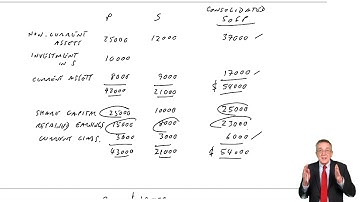 P S CONSOLIDATED
SOFP
NON-CURRENT
ASSETS 25000 12000 37000 ✓
INVESTMENT
IN S 10000
CURRENT ASSETS 8000 9000 17000 ✓
43000 21000 $ 54000
SHARE CAPITAL 25000 10000 25000
RETAINED EARNINGS 15000 8000 23000
CURRENT LIABS. 3000 3000 6000 ✓
43000 21000 $ 54000